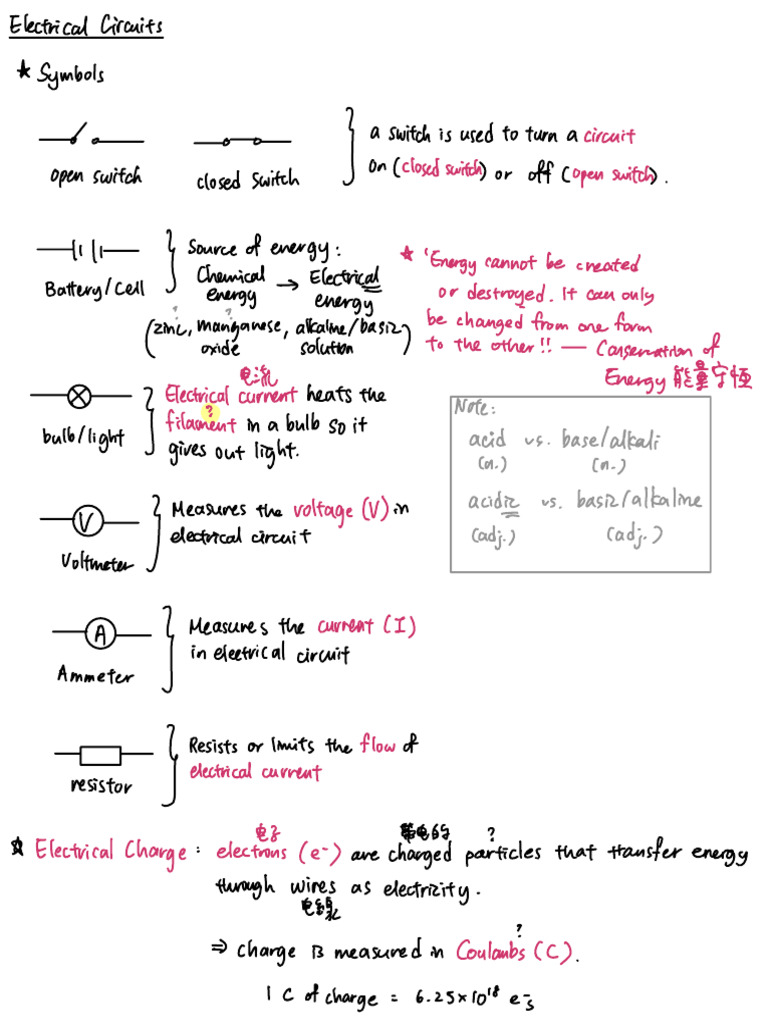 Electrical Circuits
★ Symbols
open switch
closed switch
a switch is used to turn a circuit
on (closed switch) or off (open switch).
Battery/Cell
Source of energy:
Chemical energy → Electrical energy
? ?
(zinc, manganese oxide, alkaline/basic solution)
★ 'Energy cannot be created
or destroyed. It can only
be changed from one form
to the other!! — Conservation of
Energy 能量守恆
bulb/light
电流
Electrical current heats the
?
filament in a bulb so it
gives out light.
Note:
acid vs. base/alkali
(n.) (n.)
acidic vs. basic/alkaline
(adj.) (adj.)
V
Voltmeter
Measures the voltage (V) in
electrical circuit
A
Ammeter
Measures the current (I)
in electrical circuit
resistor
Resists or limits the flow of
electrical current
电子 带电的 ?
★ Electrical Charge: electrons (e⁻) are charged particles that transfer energy
through wires as electricity.
?
⇒ charge is measured in Coulombs (C).
1 C of charge = 6.25×10¹⁸ e⁻s